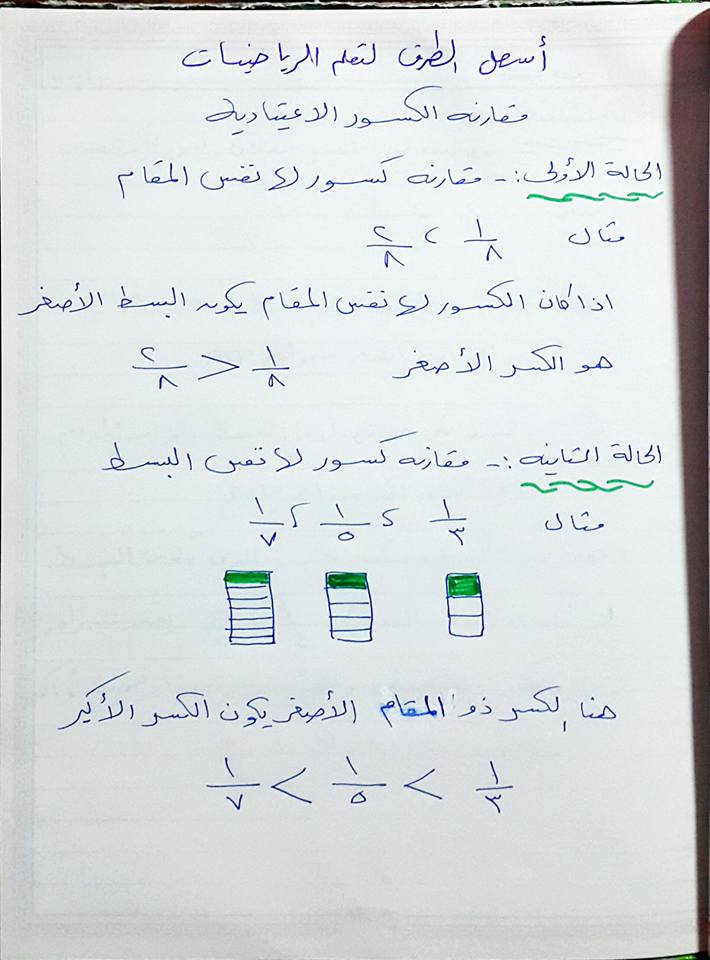 أسهل الطرق لتعلم الرياضيات
مقارنه الكسور الاعتياديه
الحالة الأولى :- مقارنه كسور لها نفس المقام
مثال ١/٨ ، ٢/٨
اذا كان الكسور لها نفس المقام يكون البسط الأصغر
هو الكسر الأصغر ١/٨ < ٢/٨
الحالة الثانيه :- مقارنه كسور لها نفس البسط
مثال ١/٣ ، ١/٥ ، ١/٧
هنا الكسر ذو المقام الأصغر يكون الكسر الأكبر
١/٣ < ١/٥ < ١/٧